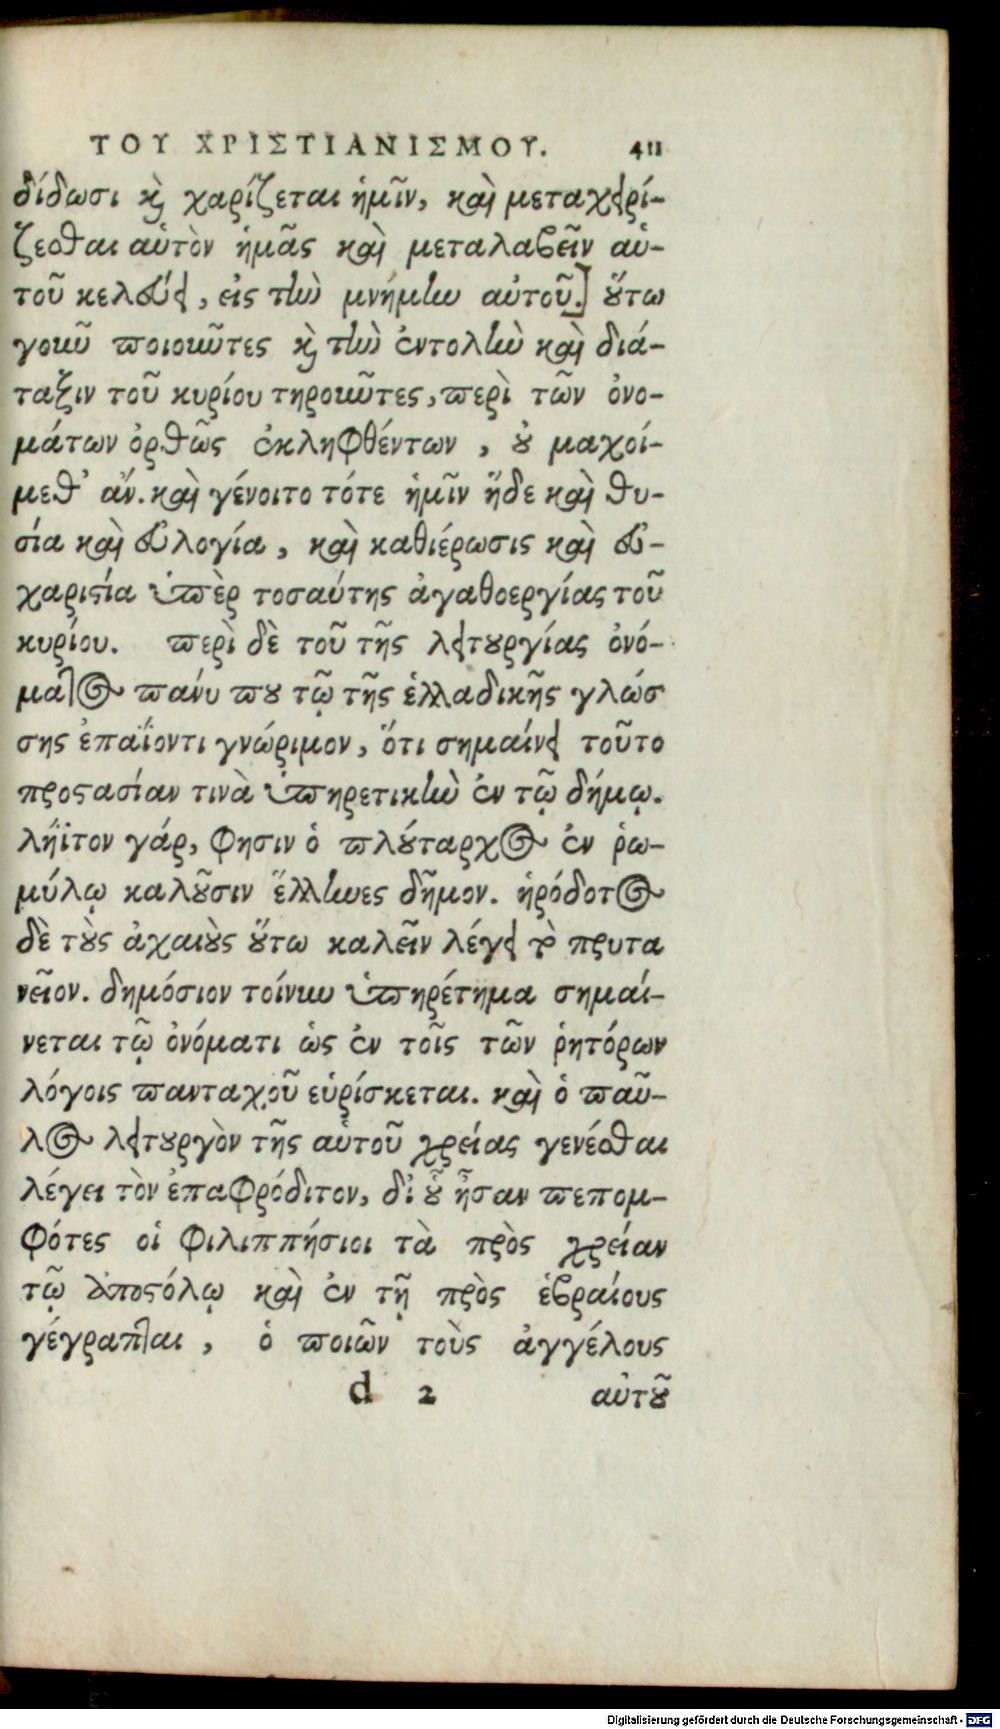 ΤΟΥ ΧΡΙΣΤΙΑΝΙΣΜΟΥ. 411
δίδωσι καὶ χαρίζεται ἡμῖν, καὶ μεταχειρί-
ζεσθαι αὐτὸν ἡμᾶς καὶ μεταλαβεῖν αὐ-
τοῦ κελεύει, εἰς τὴν μνήμην αὐτοῦ.] οὕτω
γοῦν ποιοῦντες καὶ τὴν ἐντολὴν καὶ διά-
ταξιν τοῦ κυρίου τηροῦντες, περὶ τῶν ὀνο-
μάτων ὀρθῶς ἐκληφθέντων, οὐ μαχοί-
μεθ' ἄν. καὶ γένοιτο τότε ἡμῖν ἥδε καὶ θυ-
σία καὶ εὐλογία, καὶ καθιέρωσις καὶ εὐ-
χαριστία ὑπὲρ τοσαύτης ἀγαθοεργίας τοῦ
κυρίου. περὶ δὲ τοῦ τῆς λειτουργίας ὀνό-
ματος πάνυ που τῷ τῆς ἑλλαδικῆς γλώσ
σης ἐπαΐοντι γνώριμον, ὅτι σημαίνει τοῦτο
προστασίαν τινὰ ὑπηρετικὴν ἐν τῷ δήμῳ.
λήϊτον γάρ, φησιν ὁ πλούταρχος ἐν ῥω-
μύλῳ καλοῦσιν ἕλληνες δῆμον. ἡρόδοτος
δὲ τοὺς ἀχαιοὺς οὕτω καλεῖν λέγει τὸ πρυτα
νεῖον. δημόσιον τοίνυν ὑπηρέτημα σημαί-
νεται τῷ ὀνόματι ὡς ἐν τοῖς τῶν ῥητόρων
λόγοις πανταχοῦ εὑρίσκεται. καὶ ὁ παῦ-
λος λειτουργὸν τῆς αὑτοῦ χρείας γενέσθαι
λέγει τὸν ἐπαφρόδιτον, δι' οὗ ἦσαν πεπομ-
φότες οἱ φιλιππήσιοι τὰ πρὸς χρείαν
τῷ ἀποστόλῳ καὶ ἐν τῇ πρὸς ἑβραίους
γέγραπται, ὁ ποιῶν τοὺς ἀγγέλους
d 2 αὐτοῦ
Digitalisierung gefördert durch die Deutsche Forschungsgemeinschaft - DFG